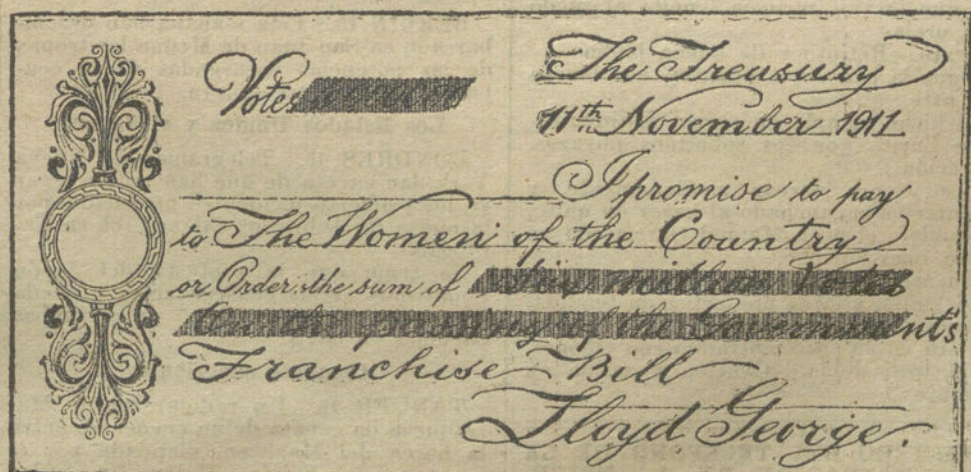 Votes
The Treasury
11th November 1911
I promise to pay
to The Women of the Country
or Order the sum of Six million Votes
On the passing of the Government's
Franchise Bill
Lloyd George.